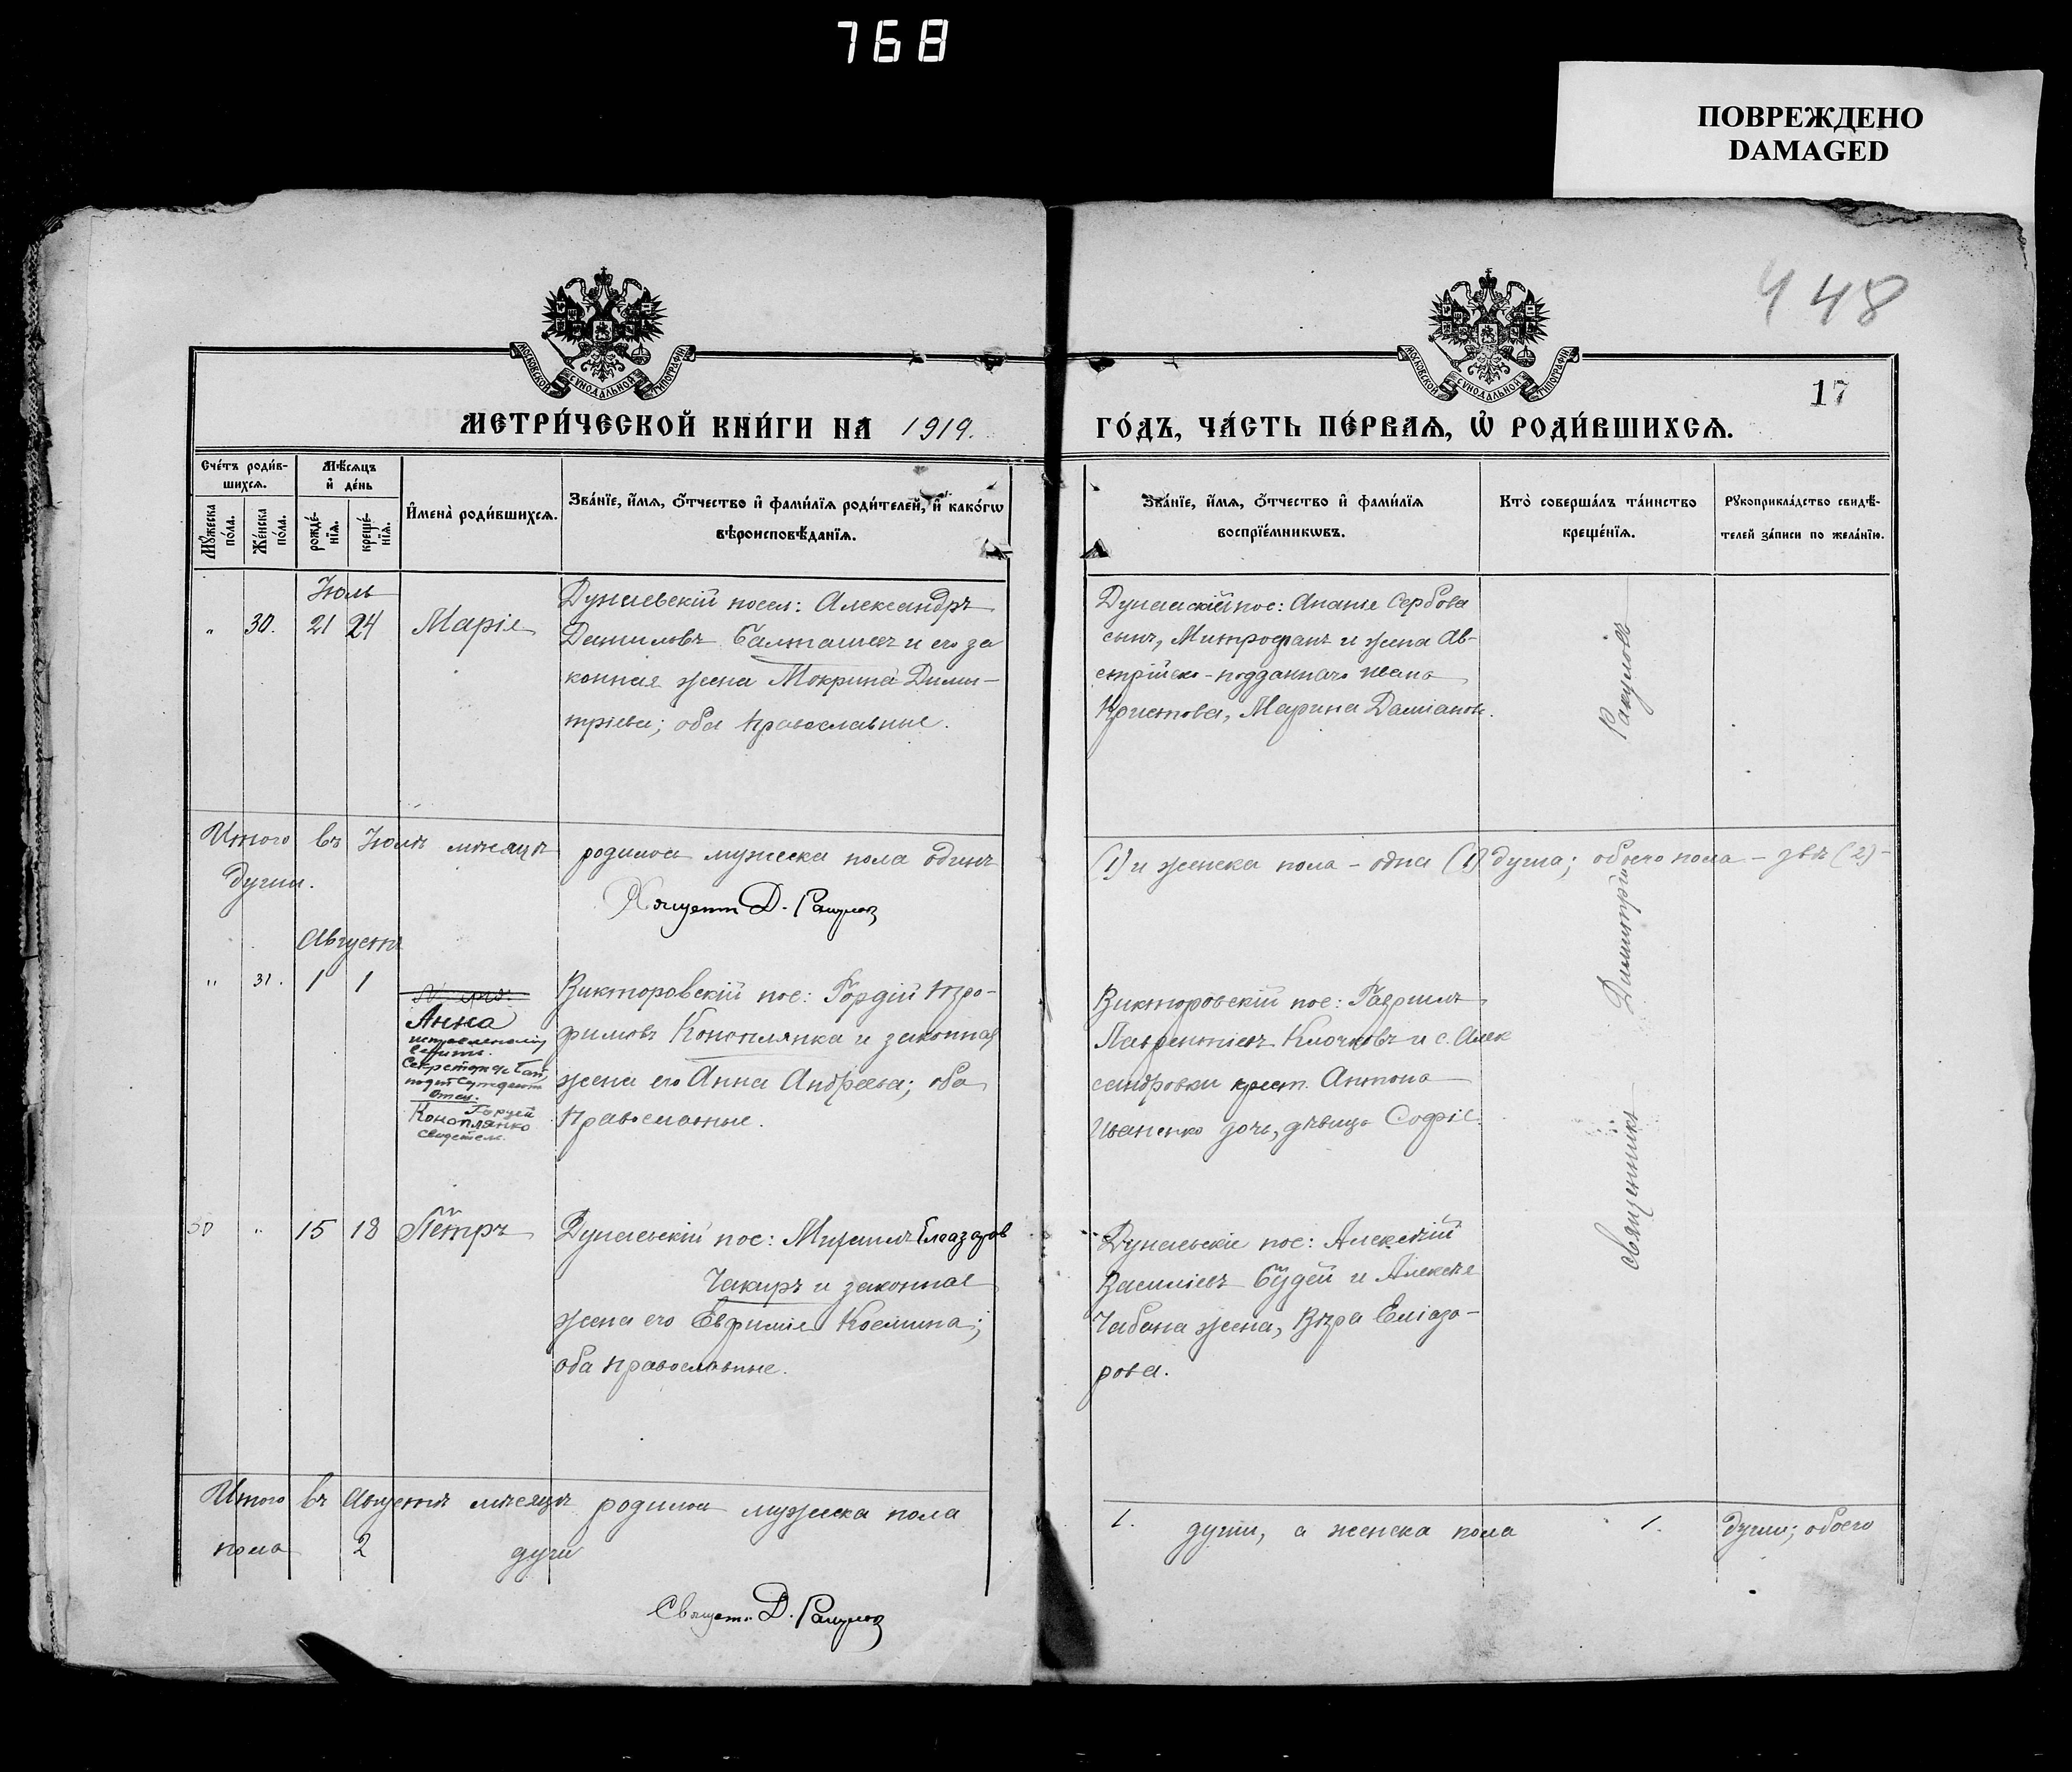 768
ПОВРЕЖДЕНО
DAMAGED
448
МОСКОВСКОЙ СѴНОДАЛЬНОЙ ТИПОГРАФІИ
МОСКОВСКОЙ СѴНОДАЛЬНОЙ ТИПОГРАФІИ
17
МЕТРИ́ЧЕСКОЙ КНИ́ГИ НА 1919.
ГО́ДЪ, ЧА́СТЬ ПЕ́РВАЯ, Ѡ РОДИ́ВШИХСЯ.
Сче́тъ роди́в-
шихся.
Мѣсяцъ
и де́нь
Му́жеска по́ла.
Же́нска по́ла.
рожде́-
нїя.
креще́-
нїя.
И҆мена̀ роди́вшихся.
Зва́нїе, и҆́мя, ѻ҆́тчество и҆ фами́лїя роди́телей, и҆ како́гѡ
вѣроисповѣ́данїя.
Зва́нїе, и҆́мя, ѻ҆́тчество и҆ фами́лїя
воспрїе́мникѡвъ.
Кто̀ соверша́лъ та́инство
креще́нїя.
Рꙋкоприкла́дство свидѣ́-
телей за́писи по жела́нїю.
Іюль
" 30. 21 24 Марія
Дунаевскій посел: Александръ
Даниловъ и его за
конная жена Мокрина Дими-
тріева; оба православные.
пос: Ананія Сербова
сынъ, Митрофанъ и жена Ав-
стрійско-подданнаго Ивана
Христова, Марина
Итого въ Іюлѣ мѣсяцѣ родилось мужеска пола одинъ
(1) и женска пола - одна (1) душа; обоего пола - двѣ (2) -
души.
Д. Рацулов
Августъ
" 31. 1 1
Анна
Секретарь
отец:
Гордей
Коноплянко
свидетель.
Викторовскій пос: Гордій Тро-
фимовъ Коноплянка и законная
жена его Анна Андреева; оба
православные.
Викторовскій пос: Гавриилъ
Лаврентіевъ Клочковъ и с. Алек
сандровки крест. Антона
Иваненко дочь, дѣвица Софія.
30 " 15 18 Пётръ
Дунаевскій пос: Михаилъ Елеазаров
Чакиръ и законная
жена его Евфимія Косьмина;
оба православные.
Дунаевскіе пос: Алексѣй
Василіевъ Будей и Алексѣя
Чабана жена, Вѣра Еліаза-
рова.
Священникъ Димитрій Рацуловъ
Итого въ Августѣ мѣсяцѣ родилось мужеска пола
1. души, а женска пола 1. души; обоего
пола 2 души
Свящет. Д. Рацулов